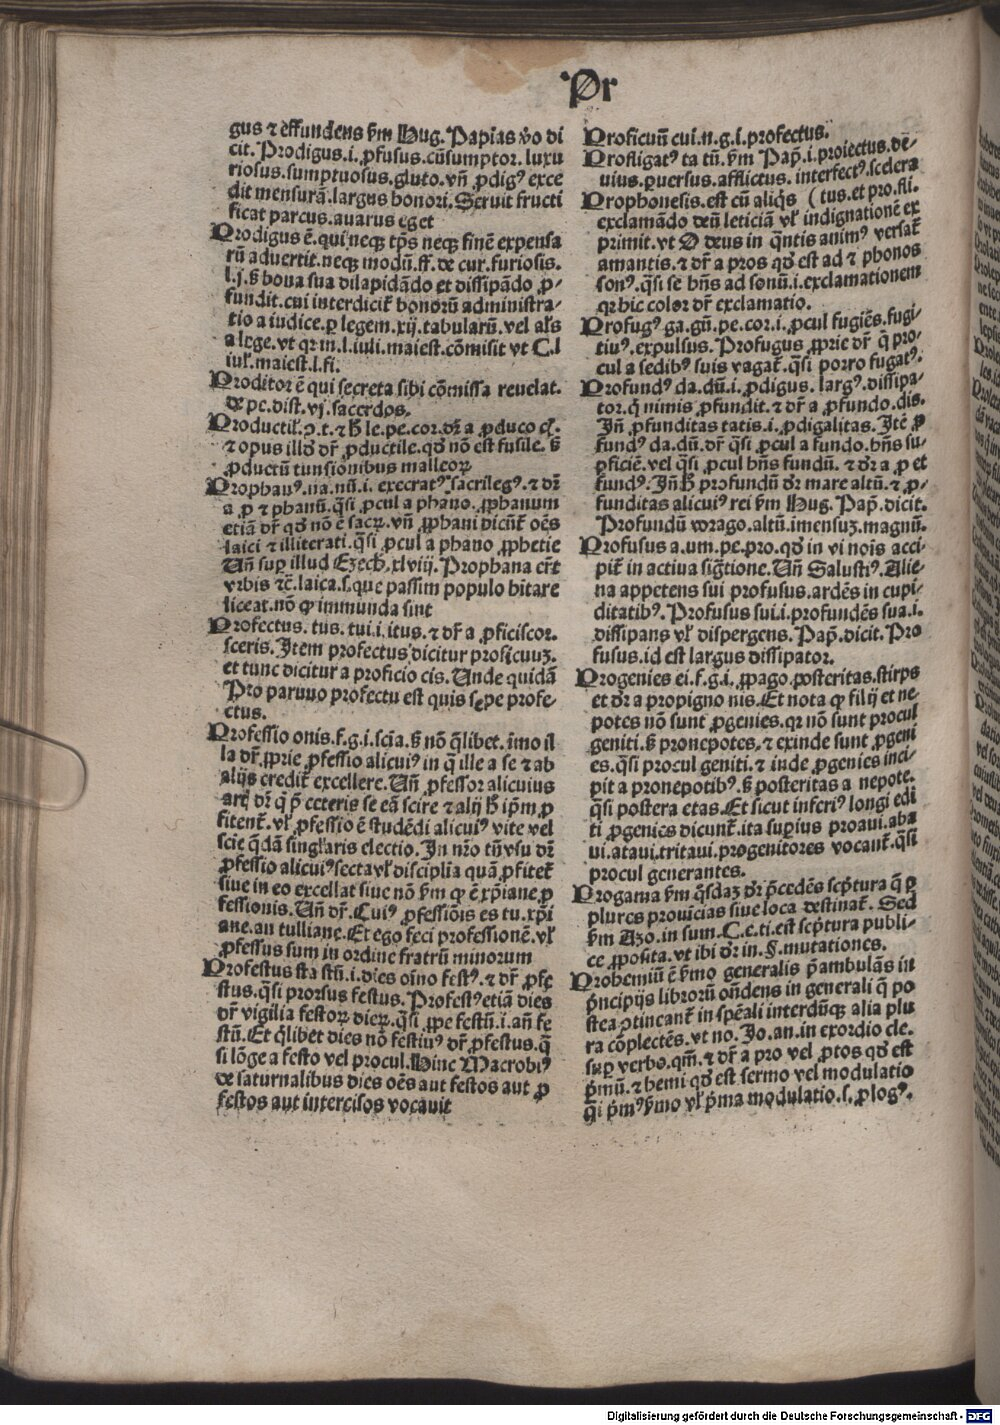 Pr
gus ⁊ effundens ẜm Hug. Papias ỽo di
cit. Prodigus .i. ꝓfusus. cūsumptor. luxu
riosus. sumptuosus. gluto. vñ ꝓdigꝰ exce
dit mensurā. largus honori. Seruit fructi
ficat parcus. auarus eget
Prodigus ē. qui neqꝫ tp̄s neqꝫ finē expensa
rū aduertit. neqꝫ modū. ff. de cur. furiosis.
l.j. ẜ bona sua dilapidādo et dissipādo ꝓ-
fundit. cui interdicit̉ bonorū administra-
tio a iudice. ꝑ legem .xij. tabularū. vel al̓s
a lege. vt qꝛ in .l. iuli. maiest. cōmisit vt C. l
iul̓. maiest. l. fi.
Proditor ē qui secreta sibi cōmissa reuelat.
de pe. dist. vj. sacerdos.
Productil̓. ꝯ. t. ⁊ h̓ le. pe. cor. dr̄ a ꝓduco cꝭ.
⁊ opus illđ dr̄ ꝓductile. qđ nō est fusile. ẜ
ꝓductū tunsionibus malleoꝝ
Prophanꝰ. na. nū .i. execratꝰ. sacrilegꝰ. ⁊ dr̄
a ꝓ ⁊ phanū. q̄si ꝓcul a phano. ꝓphanum
etiā dr̄ qđ nō ē sacꝝ. vñ ꝓphani dicūt̉ oēs
laici ⁊ illiterati. q̄si ꝓcul a phano ꝓphetie
Uñ suꝑ illud Ezech. xlviij. Prophana er̄t
vrbis ⁊c̄. laica .s. que passim populo hitare
liceat. nō ꝙ immunda sint
Profectus. tus. tui .i. itus. ⁊ dr̄ a ꝓficiscor.
sceris. Item profectus dicitur proficuuꝫ.
et tunc dicitur a proficio cis. Unde quidā
Pro paruuo profectu est quis sepe profe-
ctus.
Professio onis. f. g .i. sciā. ẜ nō q̄libet. īmo il
la dr̄. ꝓprie ꝓfessio alicuiꝰ in q̄ ille a se ⁊ ab
alijs credit̉ excellere. Uñ ꝓfessor alicuius
artꝭ dr̄ q̄ p̄ ceteris se eā scire ⁊ alij h̓ ip̄m ꝓ
fitent̉. vl̓ ꝓfessio ē studēdi alicuiꝰ vite vel
scie q̄dā singl̓aris electio. In nr̄o tn̄ vsu dr̄
ꝓfessio alicuiꝰ secta vl̓ discipl̓ia quā ꝓfitet̉
siue in eo excellat siue nō ẜm ꝙ ē xp̄iane ꝓ
fessionis. Uñ dr̄. Cuiꝰ ꝓfessiōis es tu. xp̄i
ane. an tulliane. Et ego feci professionē. vl̓
ꝓfessus sum in ordine fratrū minorum
Profestus sta stū .i. dies oīno festꝰ. ⁊ dr̄. ꝓfe
stus. q̄si prorsus festus. Profestꝰ etiā dies
dr̄ vigilia festoꝝ dieꝝ. q̄si ꝓpe festū .i. añ fe
stū. Et q̄libet dies nō festiuꝰ dr̄ ꝓfestus. q̄
si lōge a festo vel procul. Hinc Macrobiꝰ
de saturnalibus dies oēs aut festos aut ꝓ
festos aut intercisos vocauit
Proficuū cui. n. g .i. profectus.
Profligatꝰ ta tū. ẜm Pap̄ .i. proiectus. de-
uius. ꝑuersus. afflictus. interfectꝰ. scelera
Prophonesis. est cū aliq̄s ( tus. et pro. fli.
exclamādo deū leticiā vl̓ indignationē ex
primit. vt O deus in q̄ntis animꝰ versat̉
amantis. ⁊ dr̄ a pros qđ est ad ⁊ phonos
sonꝰ. q̄si se hñs ad sonū .i. exclamationem
qꝛ hic color dr̄ exclamatio.
Profugꝰ ga. gū. pe. cor .i. ꝓcul fugiēs. fugi-
tiuꝰ. expulsus. Profugus ꝓprie dr̄ q̄ pro-
cul a sedibꝰ suis vagat̉. q̄si porro fugatꝰ.
Profundꝰ da. dū .i. ꝓdigus. largꝰ. dissipa-
tor. q̄ nimis ꝓfundit. ⁊ dr̄ a ꝓfundo. dis.
Iñ ꝓfunditas tatis .i. ꝓdigalitas. Itē ꝓ
fundꝰ da. dū. dr̄ q̄si ꝓcul a fundo. hñs su-
ꝑficiē. vel q̄si ꝓcul hñs fundū. ⁊ dr̄ a ꝓ et
fundꝰ. Iñ h̓ profundū dr̄ mare altū. ⁊ ꝓ-
funditas alicuiꝰ rei ẜm Hug. Pap̄. dicit.
Profundū vorago. altū. imensuꝫ. magnū.
Profusus a. um. pe. pro. qđ in vi nois̄ acci-
pit̉ in actiua siḡtione. Uñ Salustiꝰ. Alie-
na appetens sui profusus. ardēs in cupi-
ditatibꝰ. Profusus sui .i. profundēs sua .i.
dissipans vl̓ dispergens. Pap̄. dicit. Pro
fusus. id est largus dissipator.
Progenies ei. f. g .i. ꝓpago. posteritas. stirps
et dr̄ a propigno nis. Et nota ꝙ filij et ne
potes nō sunt ꝓgenies. qꝛ nō sunt procul
geniti. ẜ pronepotes. ⁊ exinde sunt ꝓgeni
es. q̄si procul geniti. ⁊ inde ꝓgenies inci-
pit a pronepotibꝰ. ẜ posteritas a nepote.
q̄si postera etas. Et sicut inferiꝰ longi edi
ti ꝓgenies dicunt̉. ita suꝑius proaui. aba
ui. ataui. tritaui. progenitores vocant̉. q̄si
procul generantes.
Progama ẜm q̄sdaꝫ dr̄ p̄cedēs scp̄tura q̄ ꝑ
plures prouīcias siue loca destinat̉. Sed
ẜm Azo. in sum. C. e. ti. est scp̄tura publi-
ce ꝓposita. vt ibi dr̄ in. §. mutationes.
Prohemiū ē ẜmo generalis p̄ambulās in
p̄ncipijs librorū oñdens in generali q̄ po
stea ꝯtineant̉ in sp̄eali interdūqꝫ alia plu
ra cōplectēs. vt no. Jo. an. in exordio cle.
suꝑ verbo. qm̄. ⁊ dr̄ a pro vel ꝓtos qđ est
p̄mū. ⁊ hemi qđ est sermo vel modulatio
q̄i p̄mꝰ ẜmo vl̓ p̄ma modulatio .s. ꝓlogꝰ.
Digitalisierung gefördert durch die Deutsche Forschungsgemeinschaft - DFG